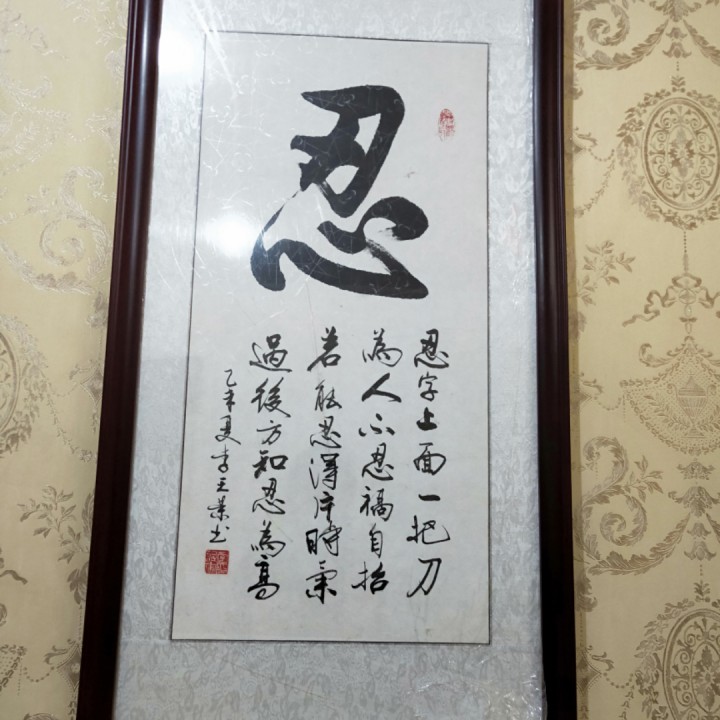 忍
忍字上面一把刀
為人不忍禍自招
若能忍得片時氣
過後方知忍為高
乙未夏李天業书